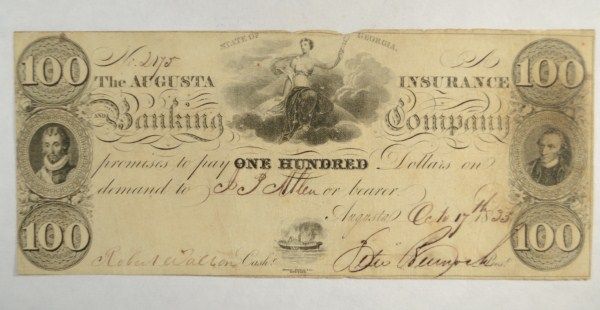 STATE OF GEORGIA.
No. 2175
100 100
The AUGUSTA INSURANCE
AND Banking Company
promises to pay ONE HUNDRED Dollars on
demand to J P Allen or bearer
Augusta Octo 17th 1835
100 100
Robert Walton Cashr.